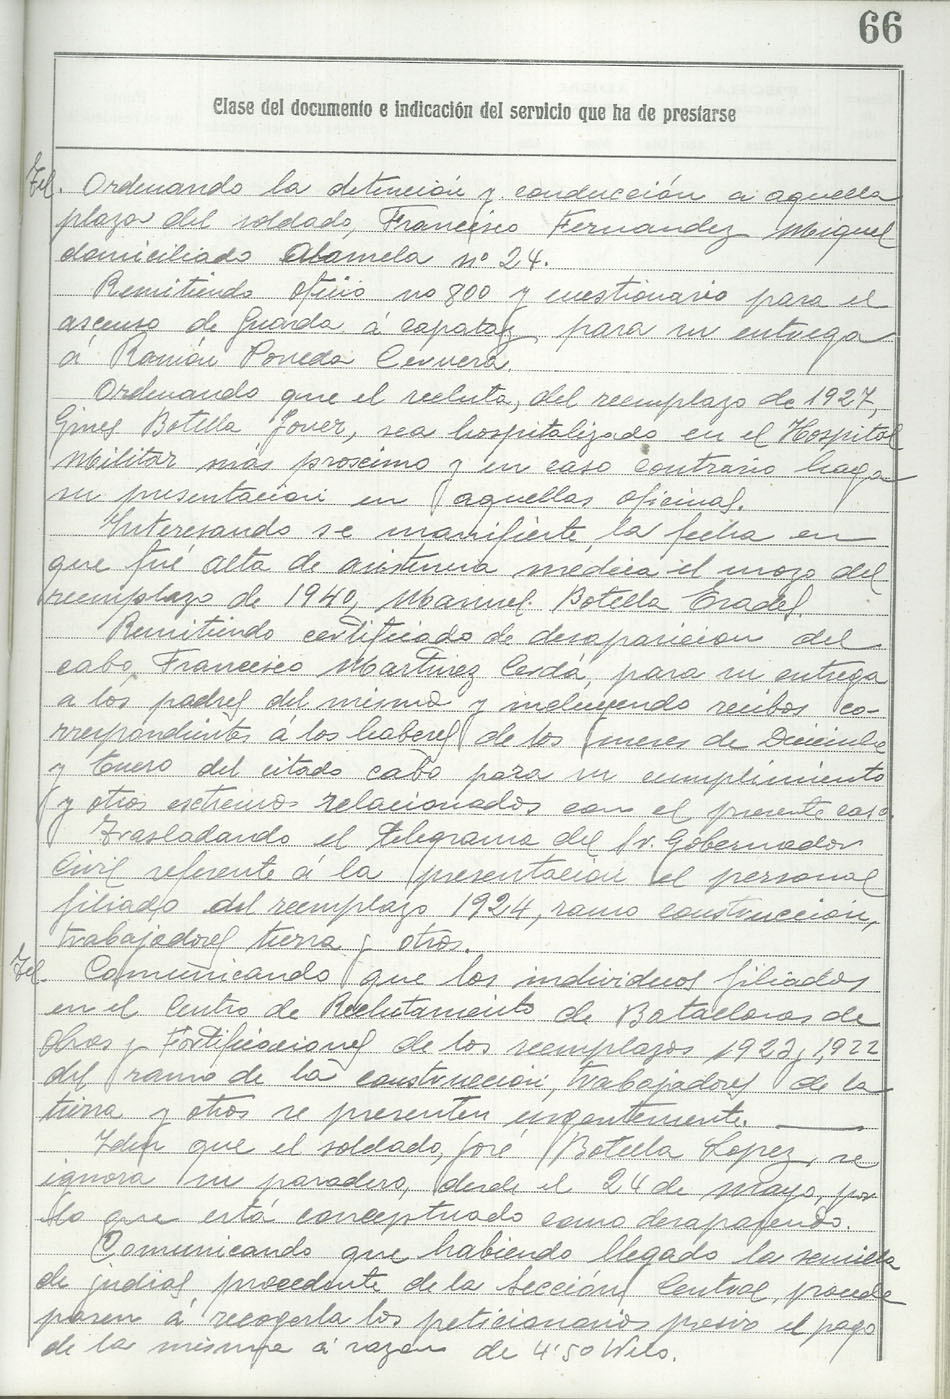 66
Clase del documento e indicación del servicio que ha de prestarse
Tel. Ordenando la detención y conducción a aquella
plaza del soldado, Francisco Fernandez Miguel
domiciliado Alameda nº 24.
Remitiendo oficio nº 800 y cuestionario para el
ascenso de Guarda á capataz para su entrega
á Ramón Poveda Cervera.
Ordenando que el recluta, del reemplazo de 1927,
Gines Botella Jover, sea hospitalizado en el Hospital
Militar mas proscimo y en caso contrario haga
su presentacion en aquellas oficinas.
Interesando se manifieste la fecha en
que fué alta de asistencia médica el mozo del
reemplazo de 1940, Manuel Botella Erades.
Remitiendo certificado de desaparicion del
cabo, Francisco Martinez Cerdá, para su entrega
a los padres del mismo y incluyendo recibos co-
rrespondientes á los haberes de los meses de Diciembre
y Enero del citado cabo para su cumplimiento
y otros extremos relacionados con el presente caso.
Trasladando el telegrama del Sr. Gobernador
Civil referente á la presentación el personal
filiado del reemplazo 1924, ramo construcción,
trabajadores tierra y otros.
Tel. Comunicando que los individuos filiados
en el Centro de Reclutamiento de Batallones de
Obras y Fortificaciones de los reemplazos 1923 y 1922
del ramo de la construcción, trabajadores de la
tierra y otros se presenten urgentemente.
Idem que el soldado, José Botella Lopez, se
ignora su paradero, desde el 24 de Mayo, por
lo que está conceptuado como desaparecido.
Comunicando que habiendo llegado la semilla
de judias procedente de la Sección Central, procede
pasen á recogerla los peticionarios previo el pago
de la misma á razon de 4'50 Kilo.